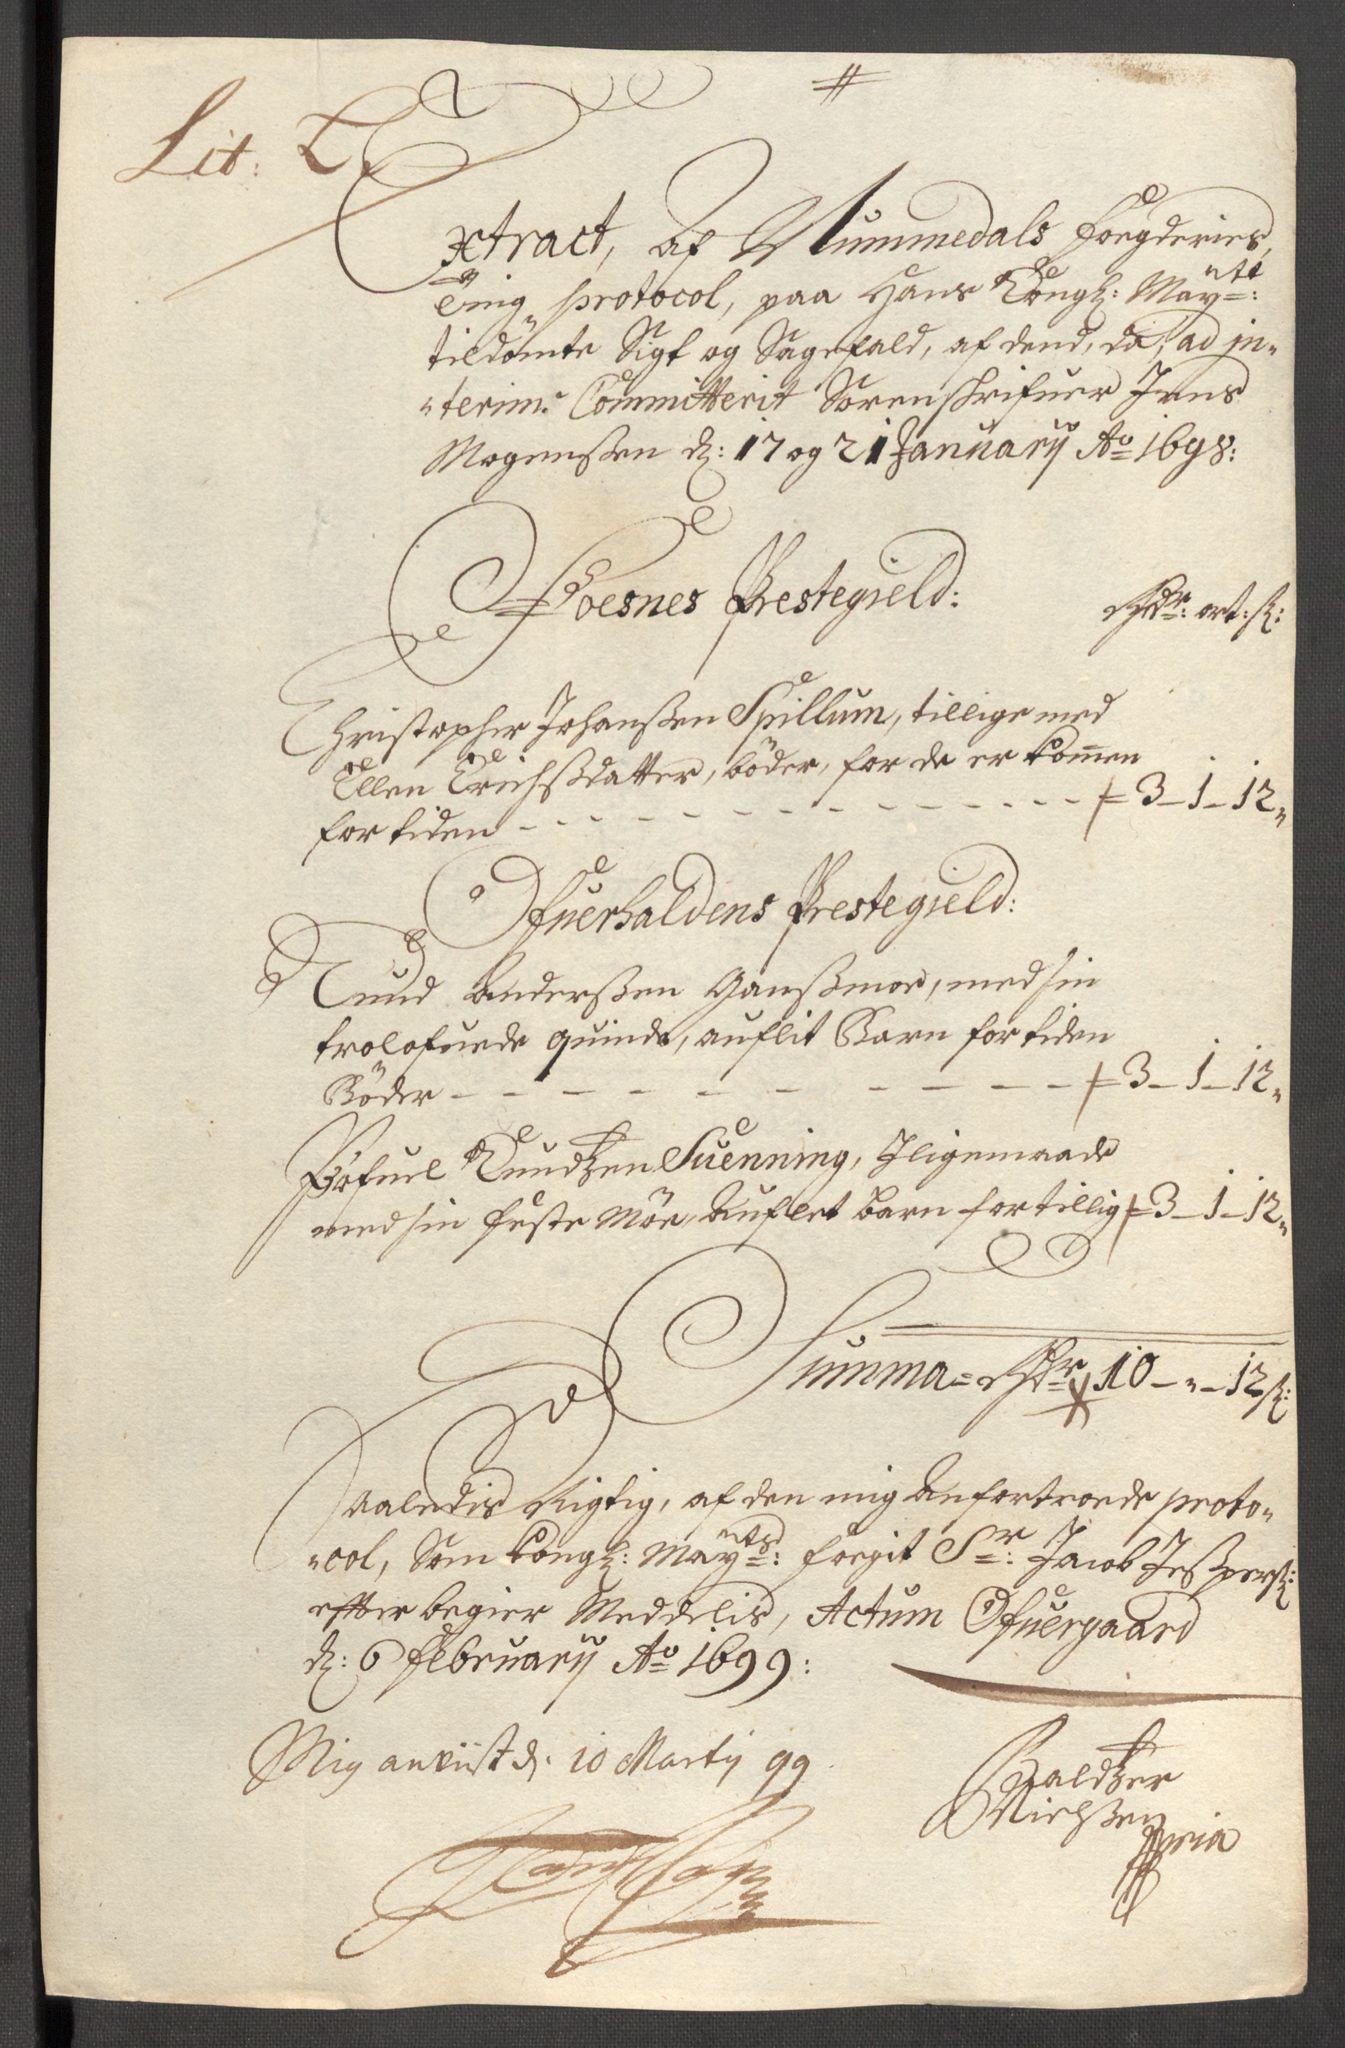 Lit: L
Extract, af Nummedals Foegderies,
Ting protocol, paa Hans Kongl: Mayttz:
tildømte Sigt og Sagefald, af dend, da, ad in„
„terim: Committerit Sorenskrifuer Jens
Mogenßen d: 17 og 21 January Ao 1698:
Foesnes Prestegield:
Rdr: ort: s:
Christopher Johanßen Spillum, tillige med
Ellen Erichsdatter, böder, for de er kom̄en
for tiden - - - - 3 - 1 - 12„
Ofuerhaldens Prestegield:
Knud Anderßen Ganßmoe, med sin
trolofuede quinde, auflit Barn for tiden
Böder - - - - 3 - 1 - 12„
Pofuel Knudtzen Suenning, Iligemaade
med sin feste Möe, Auflet barn for tillig 3 - 1 - 12„
Summa = Rdr 10 - „ - 12 s:
Saaledis Rigtig, af den mig Anfortroede proto„
„col, Som kongl: Mayts: foegit Sr: Jacob Jesperß:
efter begier Meddelis, Actum Ofuergaard
d: 6 February Ao 1699:
Mig anviist d. 10 Martij 99.
Baldtzer
Nielßen
pria